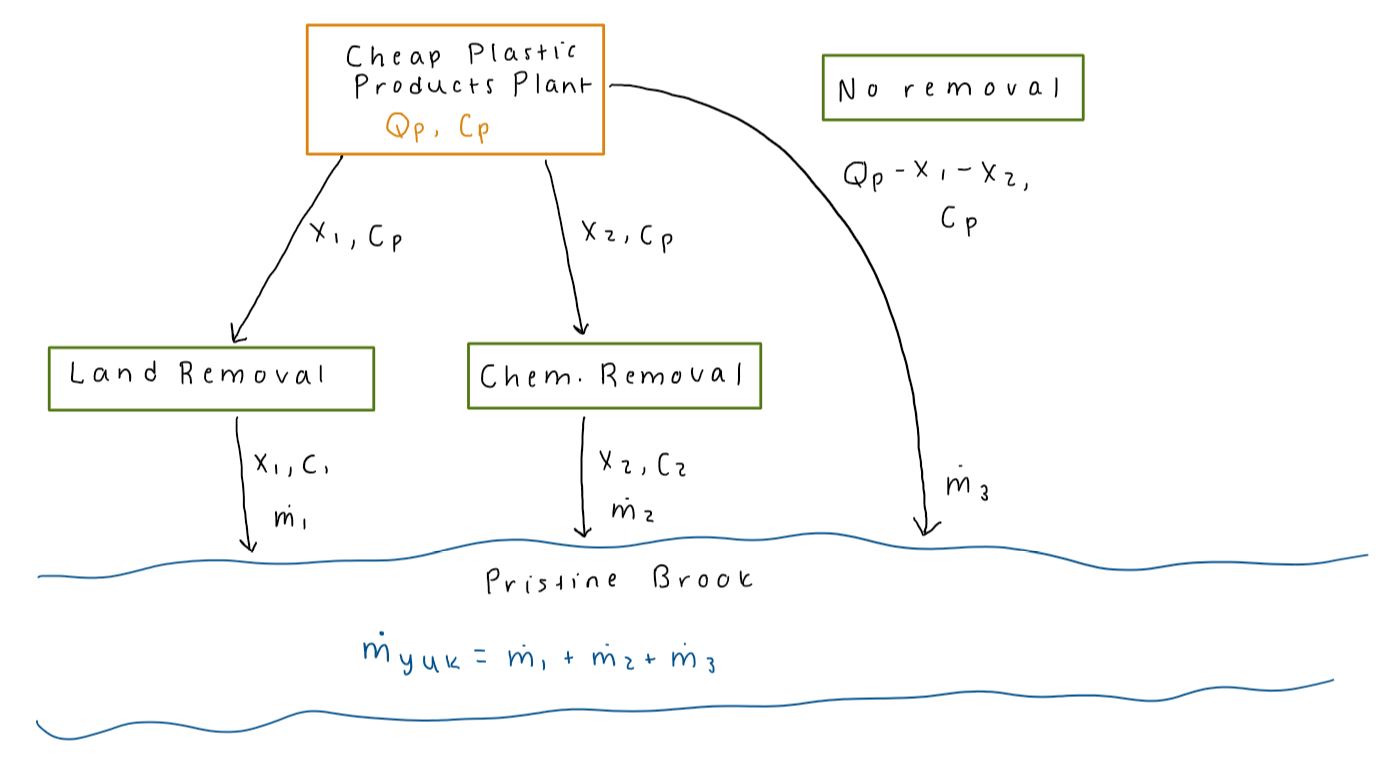 Cheap Plastic
Products Plant
Qp, Cp
No removal
Qp - X1 - X2,
Cp
X1, Cp
X2, Cp
Land Removal
Chem. Removal
X1, C1
ṁ1
X2, C2
ṁ2
ṁ3
Pristine Brook
ṁyuk = ṁ1 + ṁ2 + ṁ3